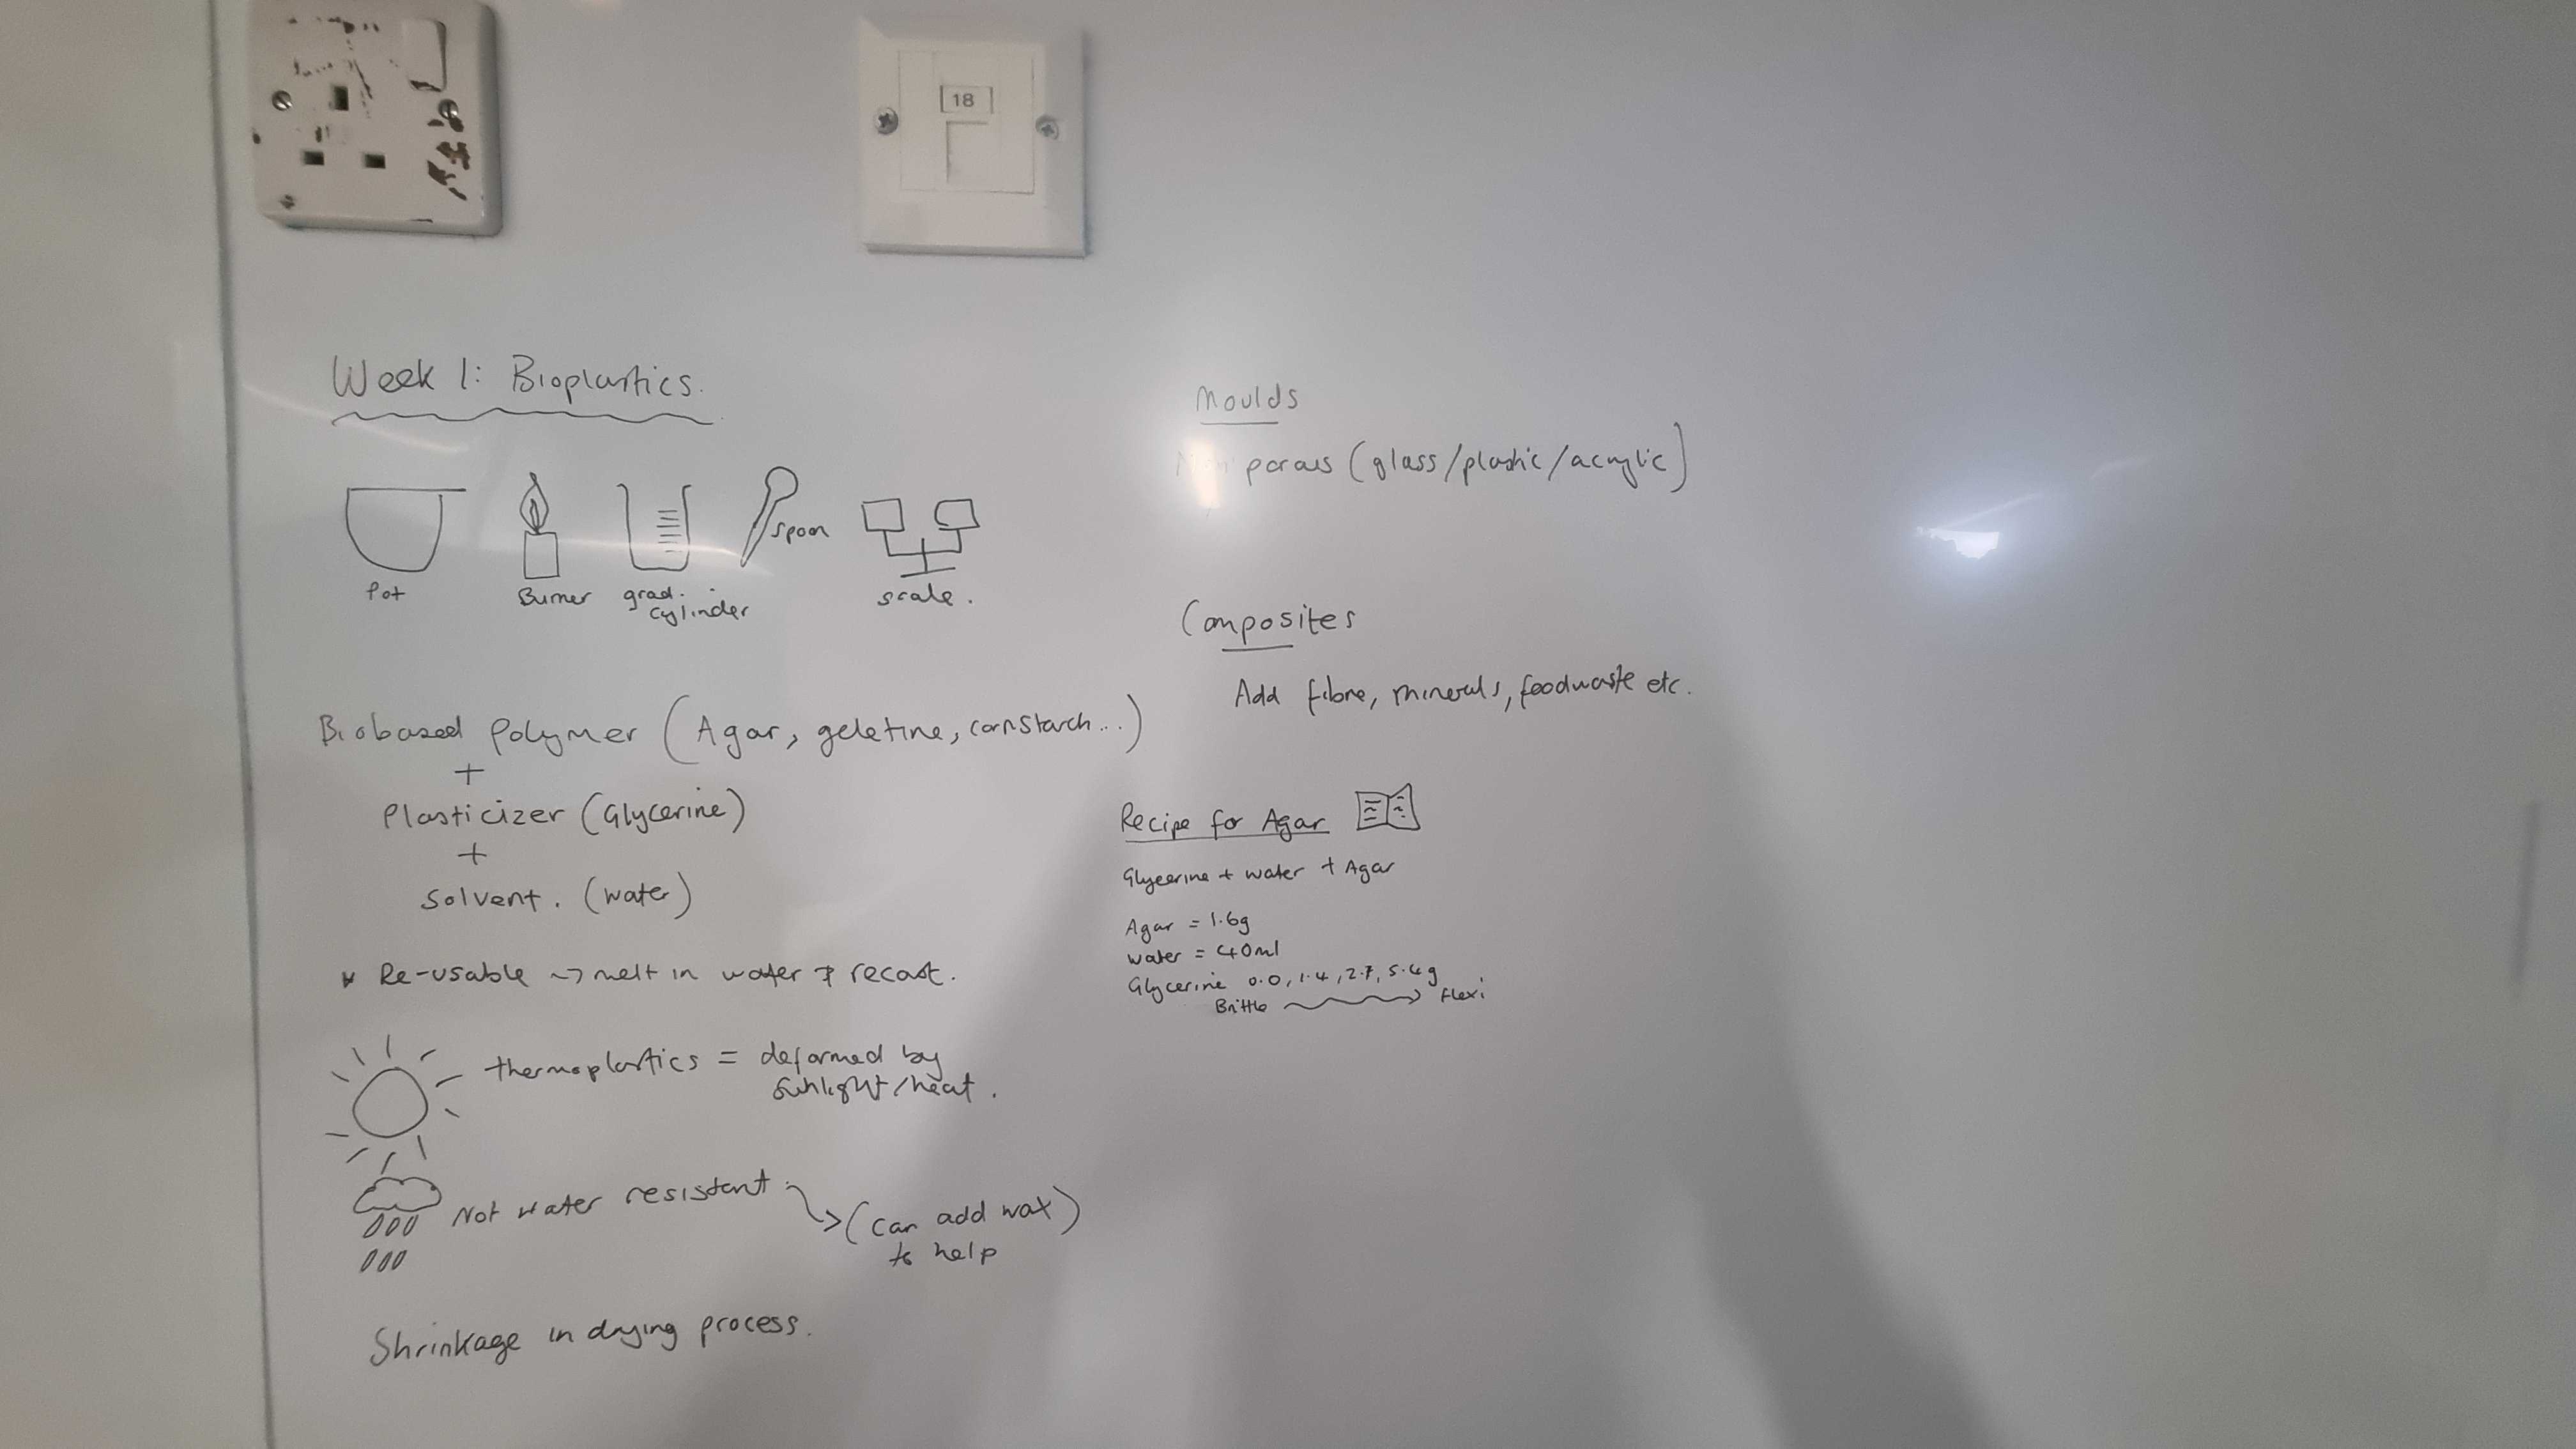 18
Week 1: Bioplastics.
Pot
Burner
grad.
cylinder
spoon
scale.
Biobased Polymer (Agar, geletine, cornstarch...)
+
Plasticizer (Glycerine)
+
Solvent. (water)
Re-usable → melt in water & recast.
thermoplastics = deformed by
sunlight/heat.
Not water resistant → (can add wax)
to help
Shrinkage in drying process.
Moulds
porous (glass/plastic/acrylic)
Composites
Add fibre, minerals, foodwaste etc.
Recipe for Agar
Glycerine + water + Agar
Agar = 1.6g
water = 40ml
Glycerine 0.0, 1.4, 2.7, 5.4g
Brittle → flexi